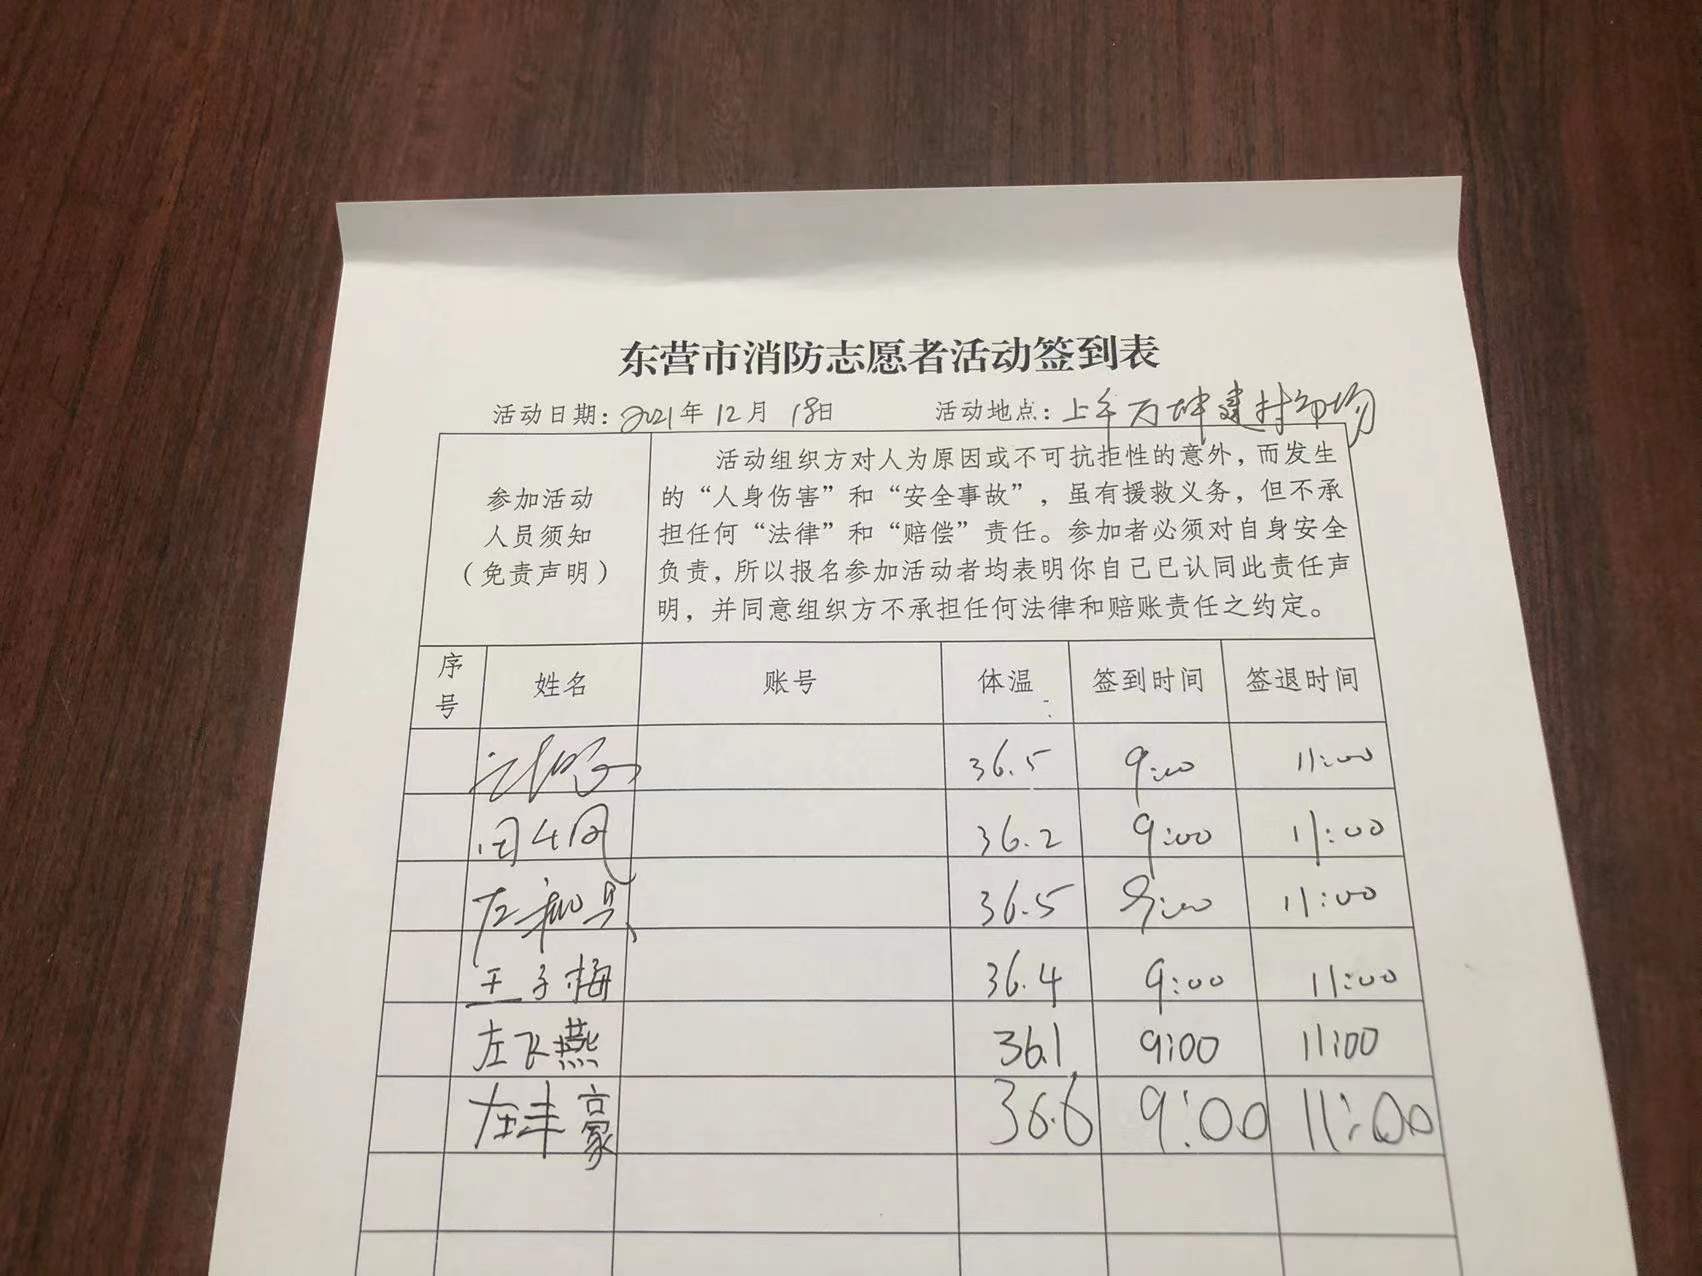 东营市消防志愿者活动签到表
活动日期：2021年12月18日 活动地点：上午万坤建材市场
参加活动
人员须知
（免责声明）
活动组织方对人为原因或不可抗拒性的意外，而发生
的“人身伤害”和“安全事故”，虽有援救义务，但不承
担任何“法律”和“赔偿”责任。参加者必须对自身安全
负责，所以报名参加活动者均表明你自己已认同此责任声
明，并同意组织方不承担任何法律和赔账责任之约定。
序号 姓名 账号 体温 签到时间 签退时间
36.5 9:00 11:00
36.2 9:00 11:00
36.5 9:00 11:00
王子梅 36.4 9:00 11:00
左飞燕 36.1 9:00 11:00
左丰豪 36.6 9:00 11:00